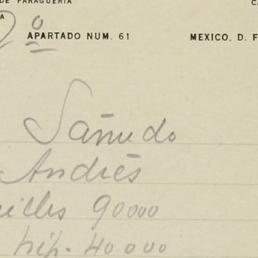 DE PARAGUERIA
APARTADO NUM. 61 MEXICO, D. F
Sañudo
Andrés
90000
hip. 40000